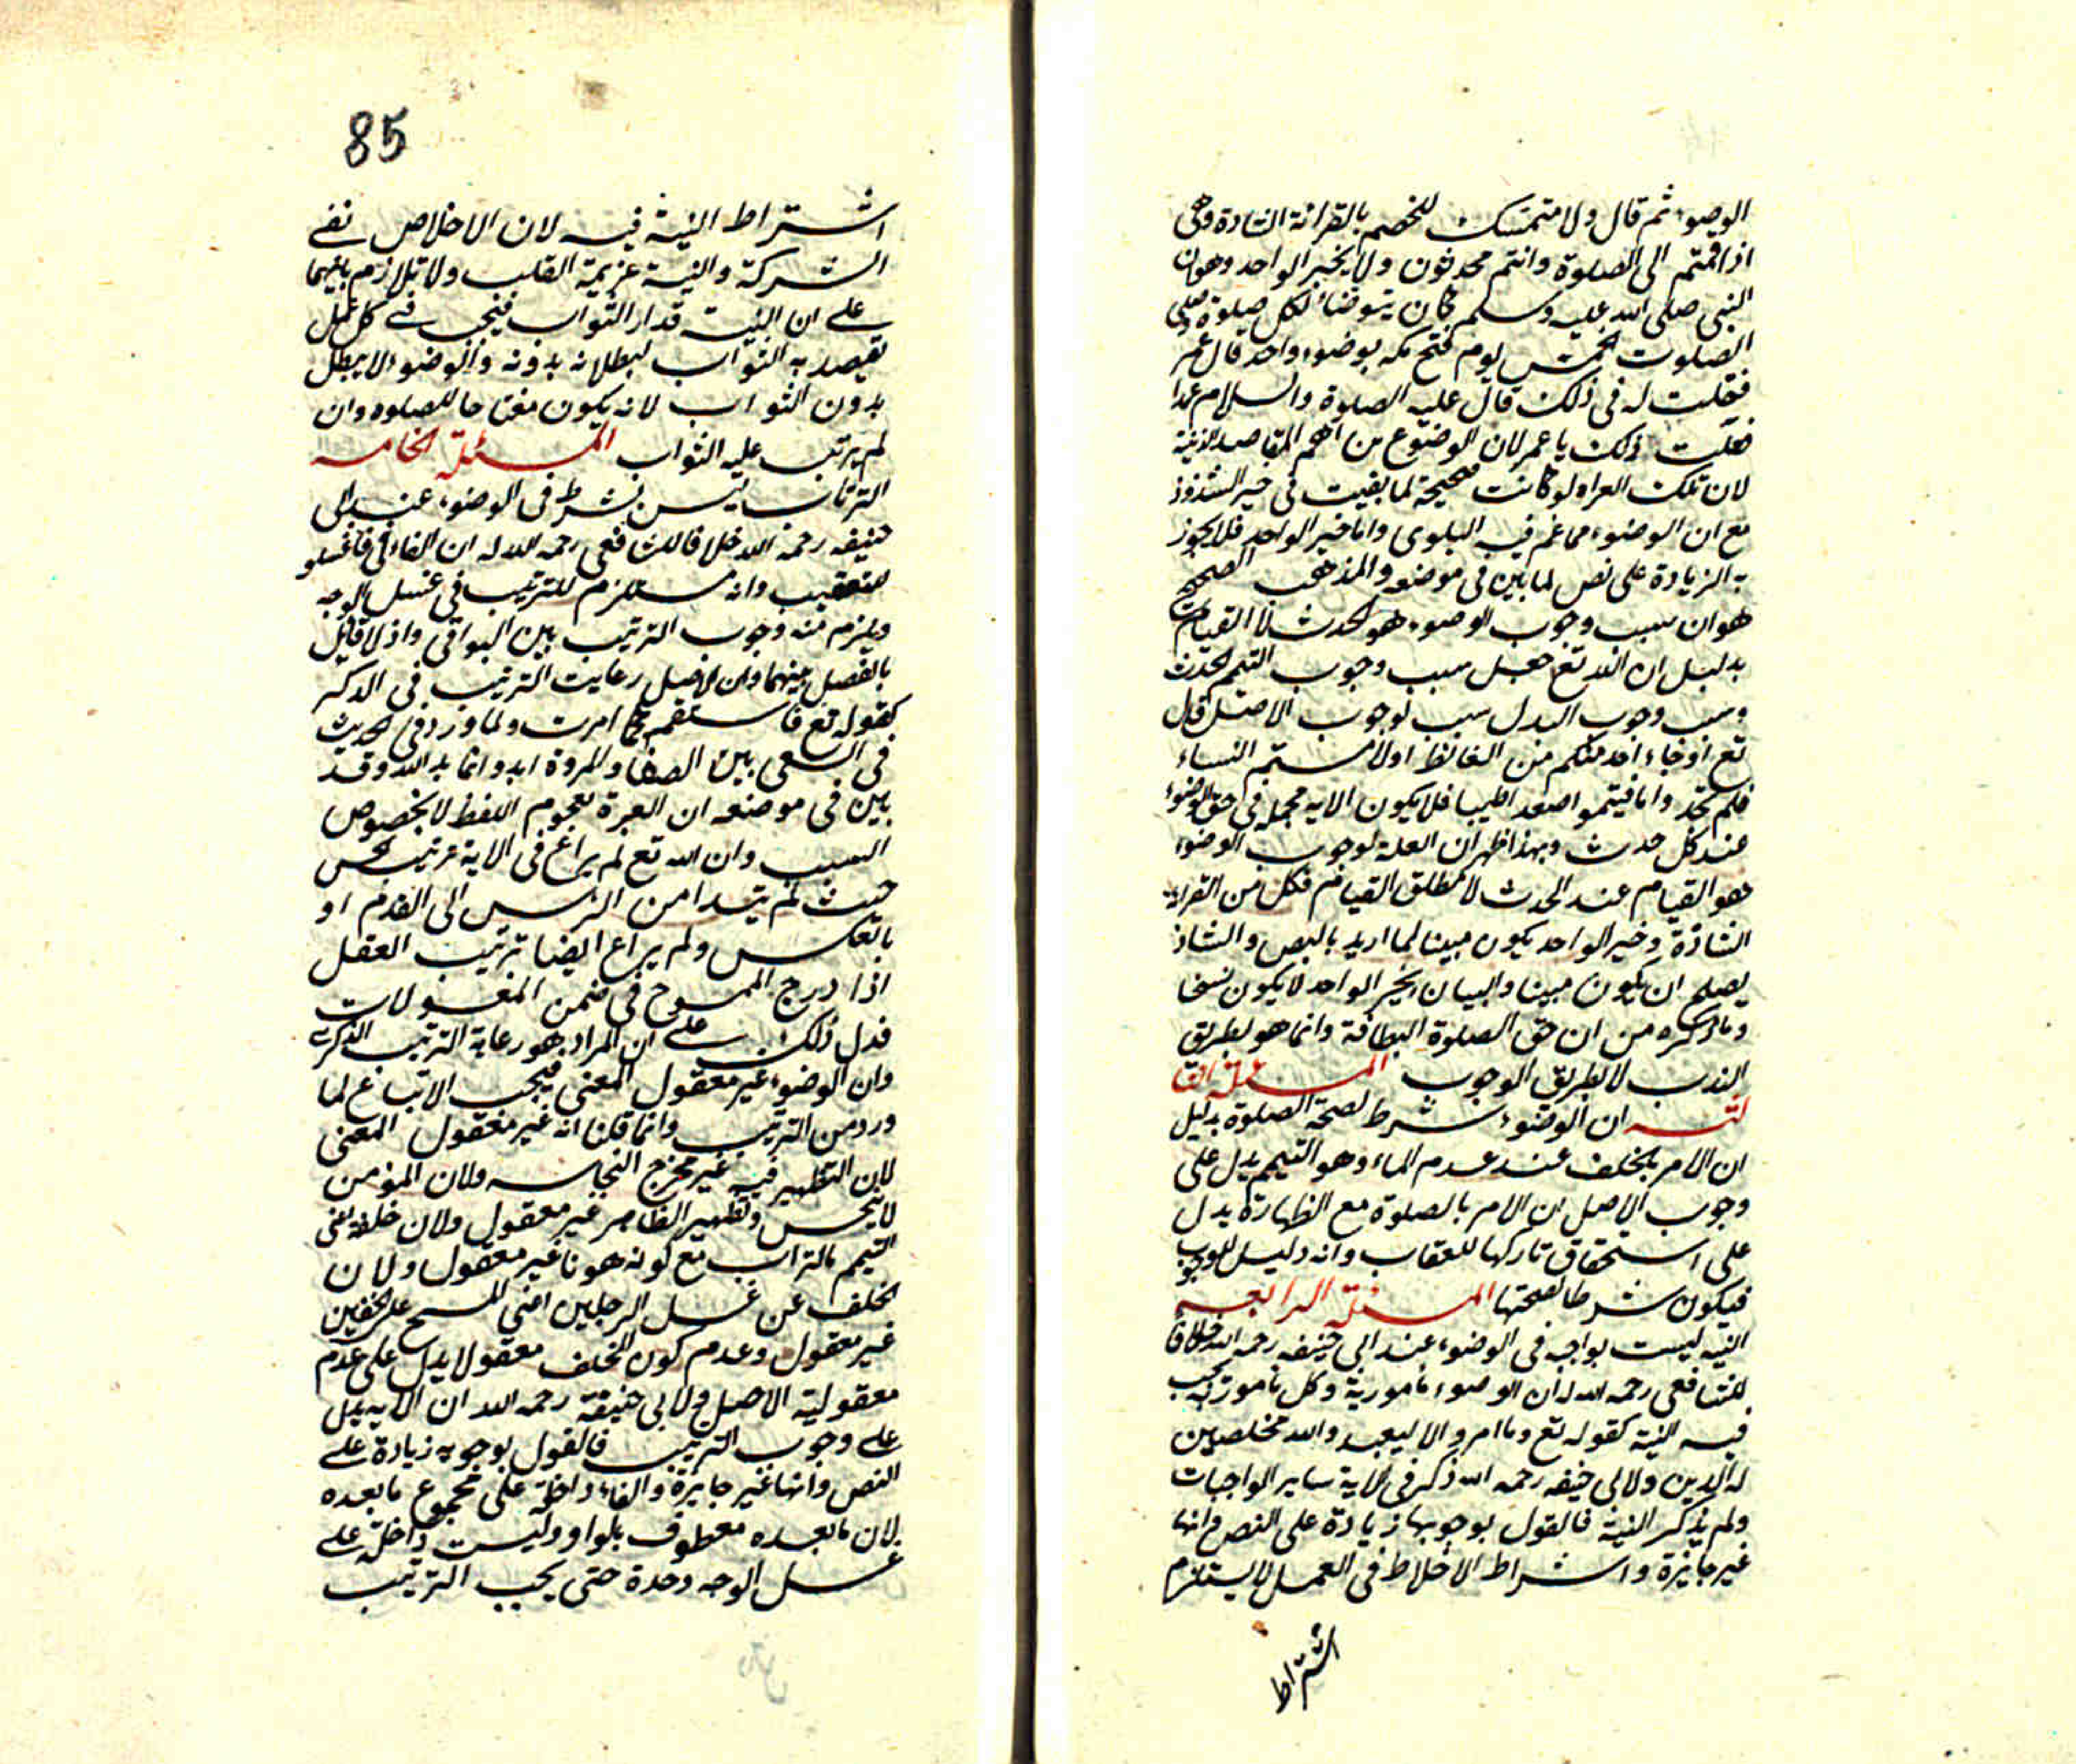 الوضوء ثم قال ولا متمسك للخصم بالقرائة الشاذة وهى
اذا قمتم الى الصلوة وانتم محدثون ولا بخبر الواحد وهو ان
النبى صلى الله عليه وسلم كان يتوضأ لكل صلوة صلى
الصلوت الخمس يوم فتح مكه بوضوء واحد قال عمر
فقلت له فى ذلك قال عليه الصلوة والسلام عمدا
فعلت ذلك يا عمر لان الوضوء من اهم المقاصد الدينية
لان تلك القراء لو كانت صحيحة لما بقيت فى حيز الشذوذ
مع ان الوضوء مما عم فيه البلوى واما خبر الواحد فلا يجوز
به الزيادة على نص لما بين فى موضعه والمذهب الصحيح
هو ان سبب وجوب الوضوء هو الحدث لا القيام
بدليل ان الله تع جعل سبب وجوب التيمم الحدث
وسبب وجوب البدل سبب لوجوب الاصل قال
تع او جاء احد منكم من الغائط او لامستم النساء
فلم تجدوا ما فتيمموا صعيدا طيبا فلا يكون الايه مجملة فى حق الوضوء
عند كل حدث وبهذا ظهر ان العلة لوجوب الوضوء
هو القيام عند الحدث لا مطلق القيام فكل من القراءة
الشاذة وخبر الواحد يكون مبينا لما اريد بالنص والشاذ
يصلح ان يكون مبينا والبيان بخبر الواحد لا يكون نسخا
وما ذكره من ان حق الصلوة النظافة وانما هو بطريق
الندب لا بطريق الوجوب المسئلة الثا
لثه ان الوضوء شرط لصحة الصلوة بدليل
ان الامر بالخلف عند عدم الماء وهو التيمم يدل على
وجوب الاصل ان الامر بالصلوة مع الطهارة يدل
على استحقاق تاركها للعقاب وانه دليل للوجوب
فيكون شرطا لصحتها المسئلة الرابعه
النيه ليست بواجبه فى الوضوء عند ابى حنيفه رحمه الله خلافا
للشافعى رحمه الله له ان الوضوء مامور به وكل مامور به يجب
فيه النية كقوله تع وما امروا الا ليعبدوالله مخلصين
له الدين ولابى حنيفه رحمه الله ذكر فى الاية ساير الواجبات
ولم يذكر النية فالقول بوجوبها زيادة على النص وانها
غير جايزة واشتراط الاخلاط فى العمل لا يستلزم
اشتراط
85
اشتراط النية فيه لان الاخلاص نفى
الشركة والنية عزيمة القلب ولا تلازم بينهما
على ان النيت قدار الثواب فيجب فى كل عمل
يقصد به الثواب لبطلانه بدونه والوضوء لا يبطل
بدون الثواب لانه يكون مفتاحا للصلوه وان
لم يرتب عليه الثواب المسئلة الخامسه
الترتاب ليس بشرط فى الوضوء عند ابى
حنيفه رحمه الله خلافا للشافعى رحمه الله له ان الفاء فى فاغسلو
للتعقيب وانه مستلزم للترتيب فى غسل الوجه
ويلزم منه وجوب الترتيب بين البواقى واذ لا قائل
بالفصل بينهما وان الاصل رعايت الترتيب فى الذكر
كقوله تع فاستقم كما امرت ولما ورد فى الحديث
فى السعى بين الصفا والمروة ابدوا بما بدالله وقد
بين فى موضعه ان العبرة لعموم اللفظ لا بخصوص
السبب وان الله تع لم يراع فى الاية ترتيب الحس
حيث لم يتبدا من الرأس الى القدم او
بالعكس ولم يراع ايضا ترتيب العقل
اذا درج الممسوح فى ضمن المغسولات
فدل ذلك على ان المراد هو رعاية الترتيب الذكرى
وان الوضوء غير معقول المعنى فيجب الاتباع لما
ورد من الترتيب وانما قلنا انه غير معقول المعنى
لان التطهير فيه غير مخرج النجاسه ولان المؤمن
لا ينجس وتطهير الطاهر غير معقول ولان خلفه يعنى
التيمم بالتراب مع كونه هونا غير معقول ولان
الخلف عن غسل الرجلين اعنى المسح على الخفين
غير معقول وعدم كون الخلف معقولا يدل على عدم
معقولية الاصل ولابى حنيفة رحمه الله ان الايه يدل
على وجوب الترتيب فالقول بوجوبه زيادة على
النص وانها غير جايزة والفاء داخلة على مجموع ما بعده
لان ما بعده معطوف بالواو وليست داخلة على
غسل الوجه وحدة حتى يجب الترتيب